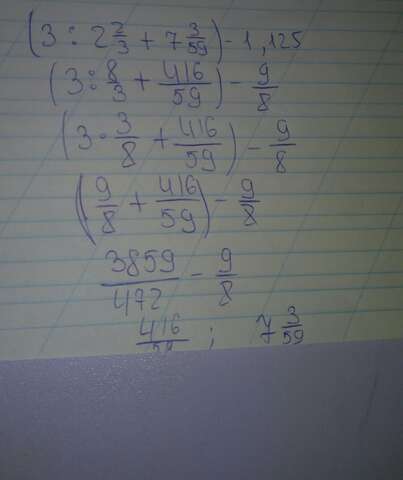 (3 : 2 2/3 + 7 3/59) - 1,125
(3 : 8/3 + 416/59) - 9/8
(3 · 3/8 + 416/59) - 9/8
(9/8 + 416/59) - 9/8
3859/472 - 9/8
416/59 ; 7 3/59